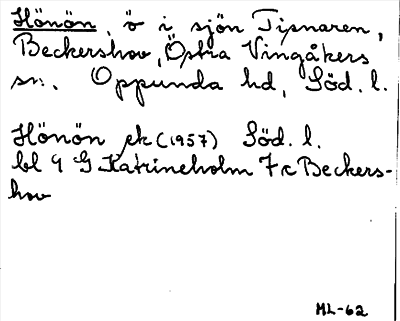 Hönön, ö i sjön Tisnaren,
Beckershov, Östra Vingåkers
sn. Oppunda hd, Söd. l.
Hönön ek (1957) Söd. l.
bl 9 G Katrineholm 7c Beckers-
hov
ML-62